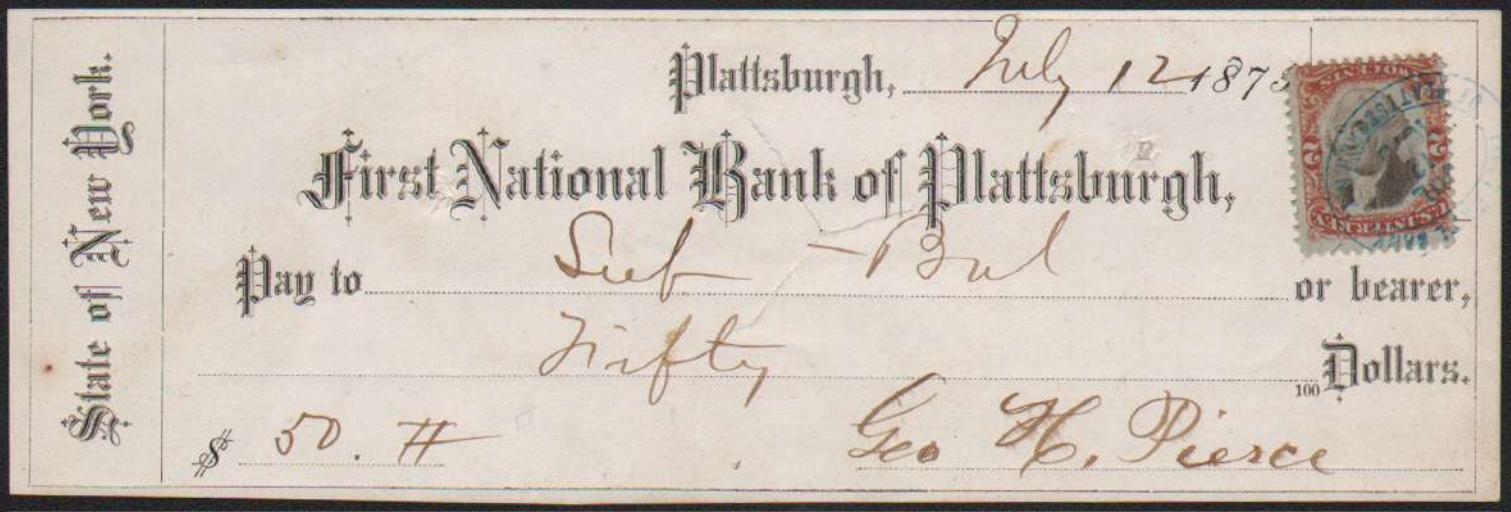 State of New York.
Plattsburgh, July 12 1873
First National Bank of Plattsburgh,
Pay to Self – Bal or bearer,
Fifty 100 Dollars.
$ 50. #
Geo H. Pierce
2 2
U.S. INTER. REV.